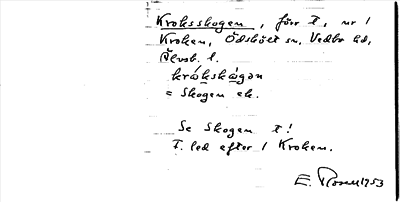 Kroksskogen, förr t, nr 1
Kroken, Ödskölt sn, Vedbo hd,
Älvsb. l.
krókskògən
= Skogen ek.
Se Skogen t!
T. led efter 1 Kroken.
E. Rosell 1953